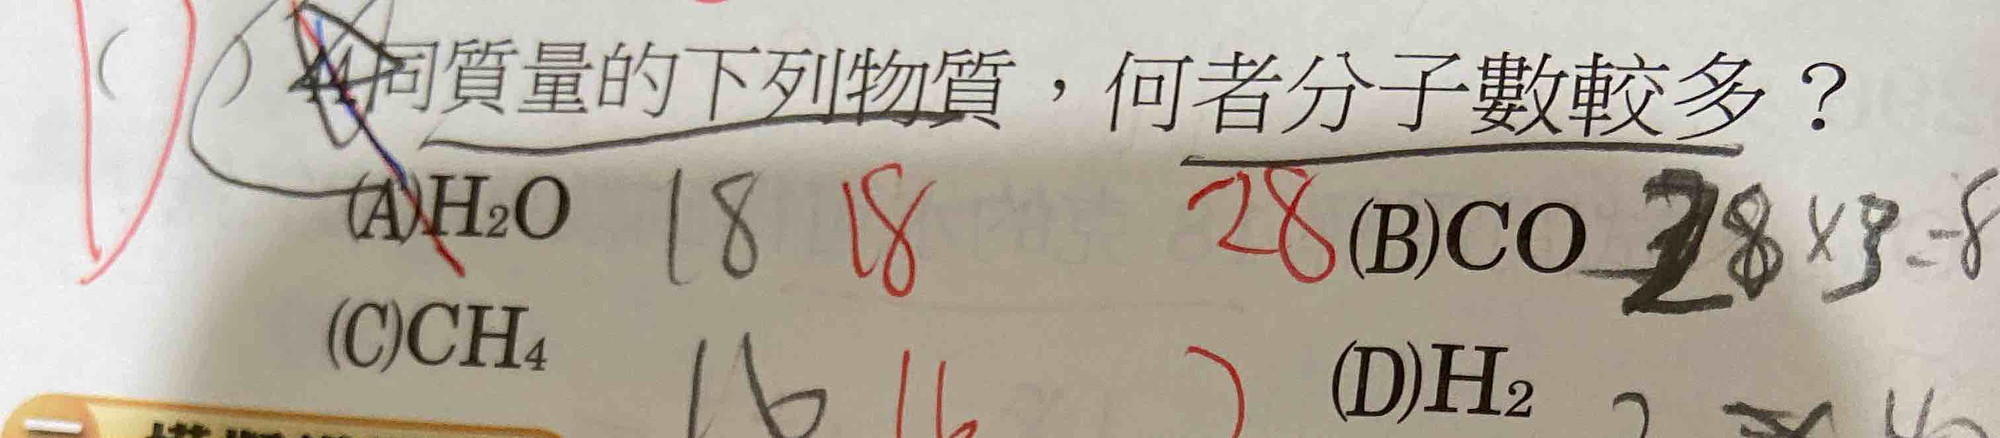 ( ) 同質量的下列物質，何者分子數較多？
(A)H₂O 18 18 28 (B)CO 28×3=8
(C)CH₄ 16 16 2 (D)H₂ 2